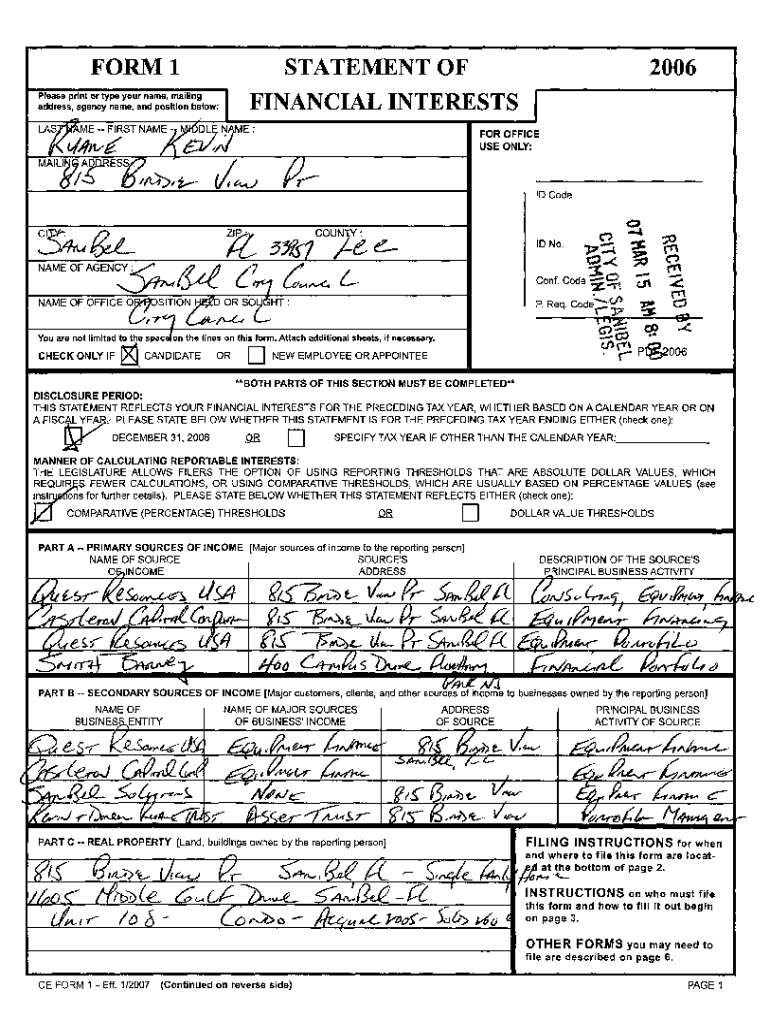 FORM 1 STATEMENT OF 2006
FINANCIAL INTERESTS
Please print or type your name, mailing
address, agency name, and position below:
LAST NAME -- FIRST NAME -- MIDDLE NAME :
RUANE KEVIN
FOR OFFICE
USE ONLY:
MAILING ADDRESS
815 BIRDIE View PT
ID Code
CITY: ZIP: COUNTY:
SANIBEL FL 33957 Lee
ID No.
NAME OF AGENCY:
SANIBEL City Council
Conf. Code
NAME OF OFFICE OR POSITION HELD OR SOUGHT :
City Council
P. Req. Code
RECEIVED BY
07 MAR 15 AM 8:
CITY OF SANIBEL
ADMIN/LEGIS.
You are not limited to the space on the lines on this form. Attach additional sheets, if necessary.
CHECK ONLY IF CANDIDATE OR NEW EMPLOYEE OR APPOINTEE
2006
**BOTH PARTS OF THIS SECTION MUST BE COMPLETED**
DISCLOSURE PERIOD:
THIS STATEMENT REFLECTS YOUR FINANCIAL INTERESTS FOR THE PRECEDING TAX YEAR, WHETHER BASED ON A CALENDAR YEAR OR ON
A FISCAL YEAR. PLEASE STATE BELOW WHETHER THIS STATEMENT IS FOR THE PRECEDING TAX YEAR ENDING EITHER (check one):
DECEMBER 31, 2006 OR SPECIFY TAX YEAR IF OTHER THAN THE CALENDAR YEAR:
MANNER OF CALCULATING REPORTABLE INTERESTS:
THE LEGISLATURE ALLOWS FILERS THE OPTION OF USING REPORTING THRESHOLDS THAT ARE ABSOLUTE DOLLAR VALUES, WHICH
REQUIRES FEWER CALCULATIONS, OR USING COMPARATIVE THRESHOLDS, WHICH ARE USUALLY BASED ON PERCENTAGE VALUES (see
instructions for further details). PLEASE STATE BELOW WHETHER THIS STATEMENT REFLECTS EITHER (check one):
COMPARATIVE (PERCENTAGE) THRESHOLDS OR DOLLAR VALUE THRESHOLDS
PART A -- PRIMARY SOURCES OF INCOME [Major sources of income to the reporting person]
NAME OF SOURCE SOURCE'S DESCRIPTION OF THE SOURCE'S
OF INCOME ADDRESS PRINCIPAL BUSINESS ACTIVITY
Quest Resources USA 815 Birdie View PT SANIBEL FL Consulting, Equipment Finance
Capital 815 Birdie View PT SANIBEL FL Equipment Financing
Quest Resources USA 815 Birdie View PT SANIBEL FL Equipment Portfolio
SMITH BARNEY 400 CAMPUS Drive Financial Portfolio
PARK NJ
PART B -- SECONDARY SOURCES OF INCOME [Major customers, clients, and other sources of income to businesses owned by the reporting person]
NAME OF NAME OF MAJOR SOURCES ADDRESS PRINCIPAL BUSINESS
BUSINESS ENTITY OF BUSINESS' INCOME OF SOURCE ACTIVITY OF SOURCE
Quest Resources USA Equipment Finance 815 Birdie View Equipment Finance
SANIBEL, FL
Capital Corp Equipment Finance Equipment Finance
SANIBEL NONE 815 Birdie View Equipment Finance
Kevin + Ruane TRUST Asset Trust 815 Birdie View Portfolio Management
PART C -- REAL PROPERTY [Land, buildings owned by the reporting person]
815 Birdie View PT SANIBEL FL - Single Family Home
1605 Middle Gulf Drive SANIBEL - FL
Unit 108 - Condo - 2005 - Sold
FILING INSTRUCTIONS for when
and where to file this form are locat-
ed at the bottom of page 2.
INSTRUCTIONS on who must file
this form and how to fill it out begin
on page 3.
OTHER FORMS you may need to
file are described on page 6.
CE FORM 1 - Eff. 1/2007 (Continued on reverse side) PAGE 1